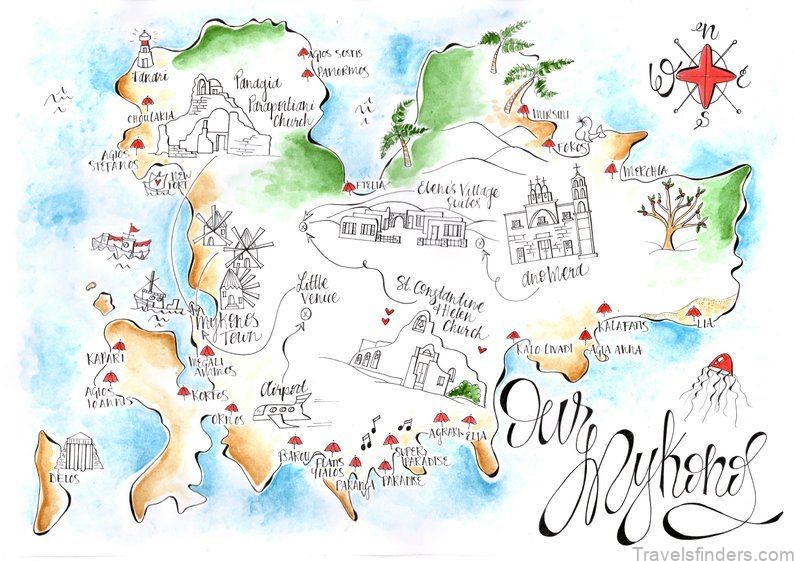 n
w
e
s
AGIOS SOSTIS
PANORMOS
Fanari
Panagia
Paraportiani
Church
CHOULAKIA
AGIOS
STEFANOS
NEW
PORT
FTELIA
MERSINI
FOKOS
MERCHIA
Eleni's Village
Suites
Ano Mera
Little
Venice
St. Constantine
& Helen
Church
Mykonos
Town
KALAFATIS
LIA
KALO LIVADI
AGIA ANNA
KAPARI
MEGALI
AMMOS
AGIOS
IOANNIS
KORFOS
ORNOS
Airport
AGRARI
ELIA
SUPER
PARADISE
PARAGA
PARADISE
DELOS
Our
Mykonos
Travelsfinders.com